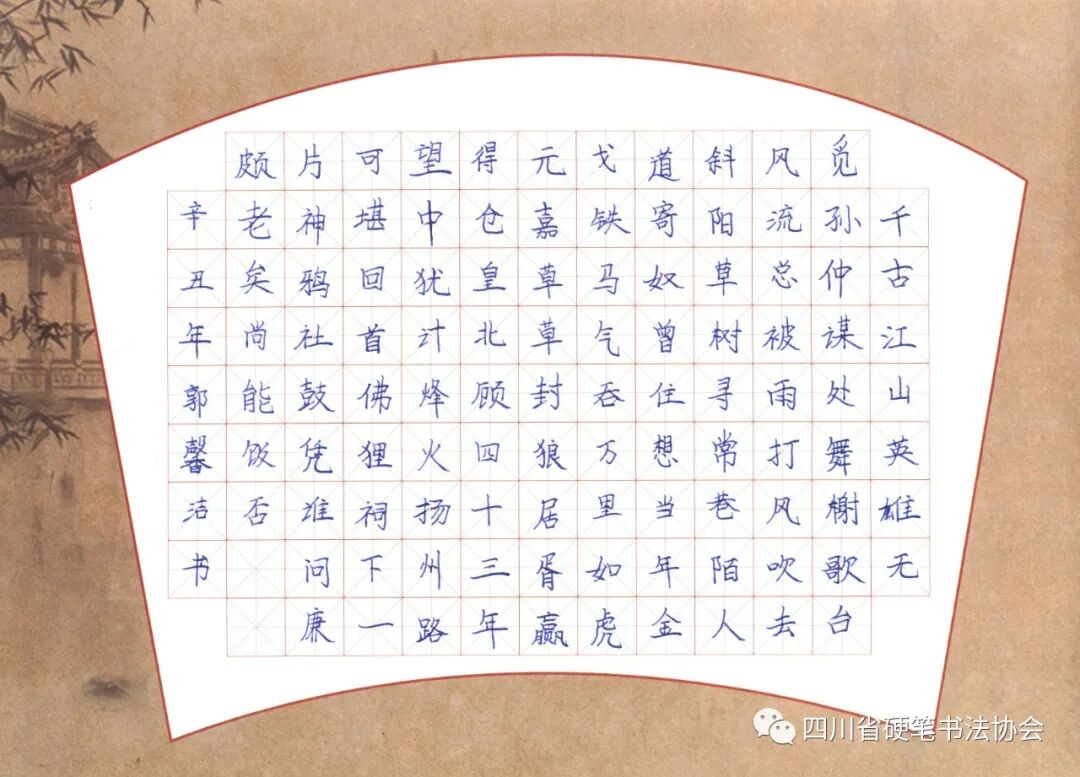 千古江山英雄无
觅孙仲谋处舞榭歌台
风流总被雨打风吹去
斜阳草树寻常巷陌人
道寄奴曾住想当年金
戈铁马气吞万里如虎
元嘉草草封狼居胥赢
得仓皇北顾四十三年
望中犹计烽火扬州路
可堪回首佛狸祠下一
片神鸦社鼓凭谁问廉
颇老矣尚能饭否
辛丑年郭馨洁书
四川省硬笔书法协会